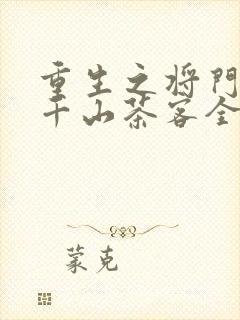 重生之将門
千山茶客全
蒙克